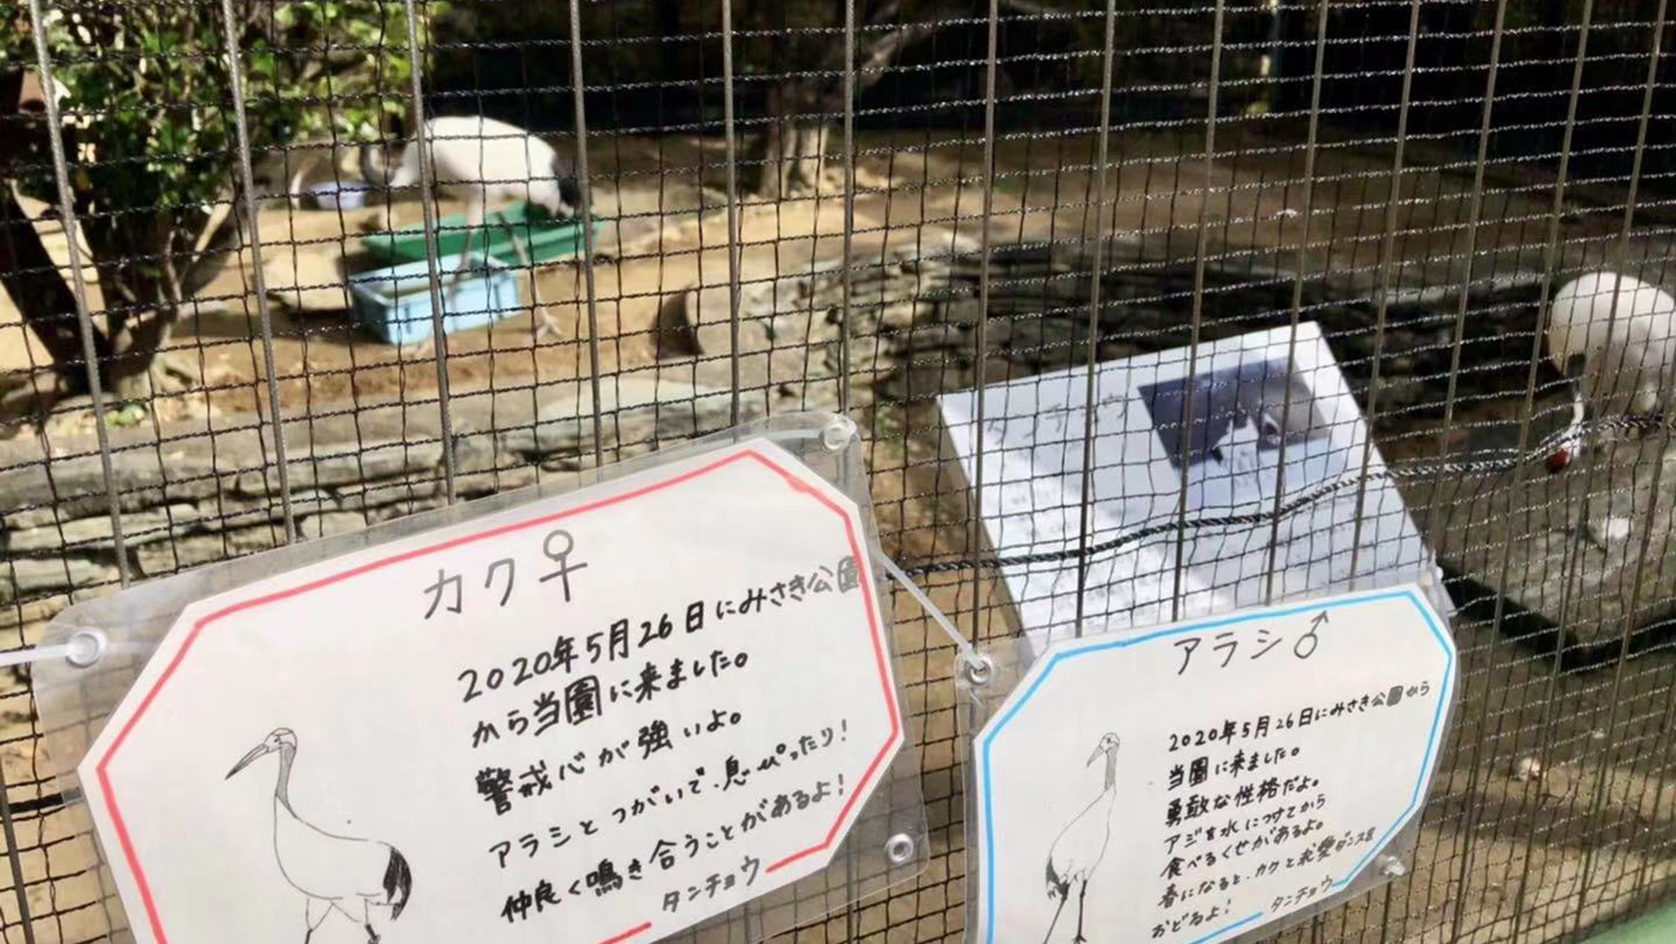 カク♀
2020年5月26日にみさき公園
から当園に来ました。
警戒心が強いよ。
アラシとつがいで、息ぴったり!
仲良く鳴き合うことがあるよ!
タンチョウ
アラシ♂
2020年5月26日にみさき公園から
当園に来ました。
勇敢な性格だよ。
アジを水につけてから
食べるくせがあるよ。
春になると、カクと求愛ダンスを
おどるよ!
タンチョウ